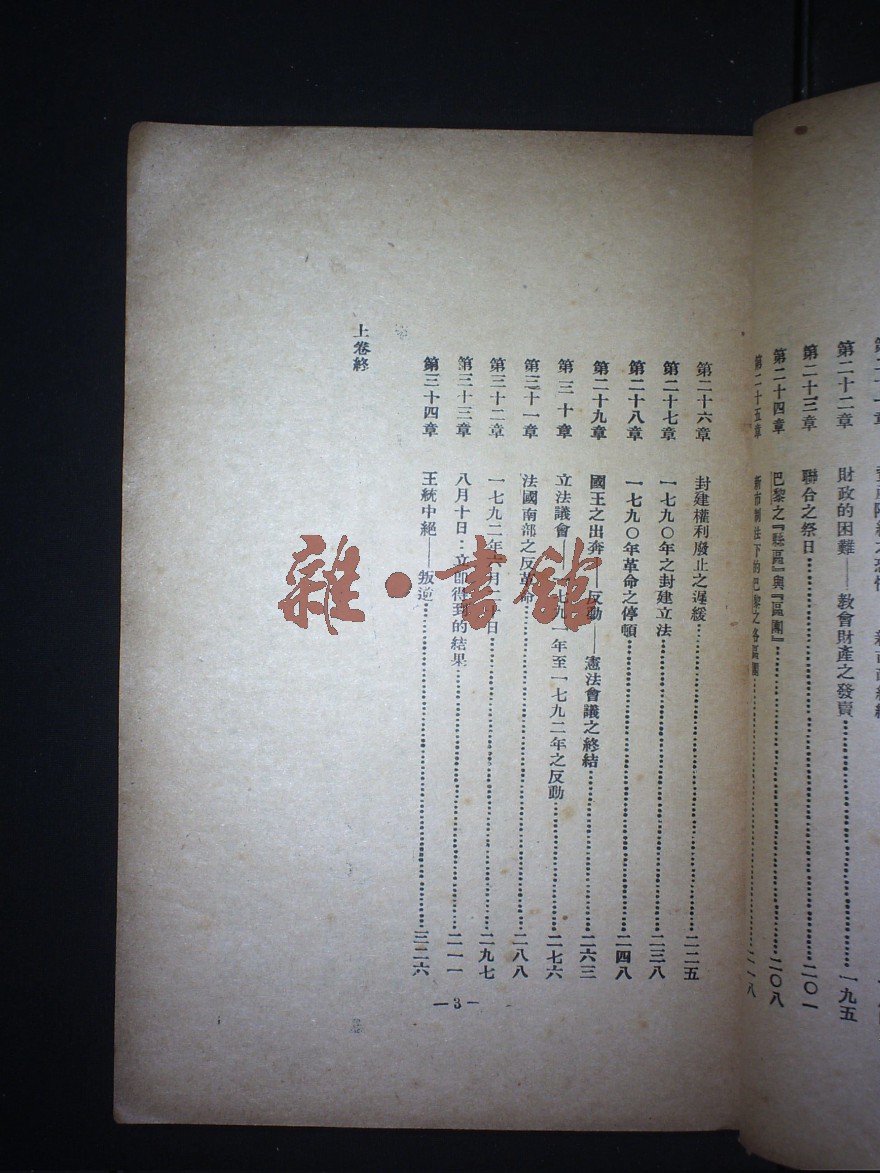 第二十二章 財政的困難——教會財產之發賣 一九五
第二十三章 聯合之祭日 二〇一
第二十四章 巴黎之『縣區』與『區團』 二〇八
第二十五章 新市制法下的巴黎之各區團 二一八
第二十六章 封建權利廢止之遲緩 二二五
第二十七章 一七九〇年之封建立法 二三八
第二十八章 一七九〇年革命之停頓 二四八
第二十九章 國王之出奔——反動——憲法會議之終結 二六三
第三十章 立法議會——一七九一年至一七九二年之反動 二七六
第三十一章 法國南部之反革命 二八八
第三十二章 一七九二年六月二十日 二九七
第三十三章 八月十日：立即得到的結果 二一一
第三十四章 王統中絕——叛逆 三二六
上卷終
—3—
雜·書館